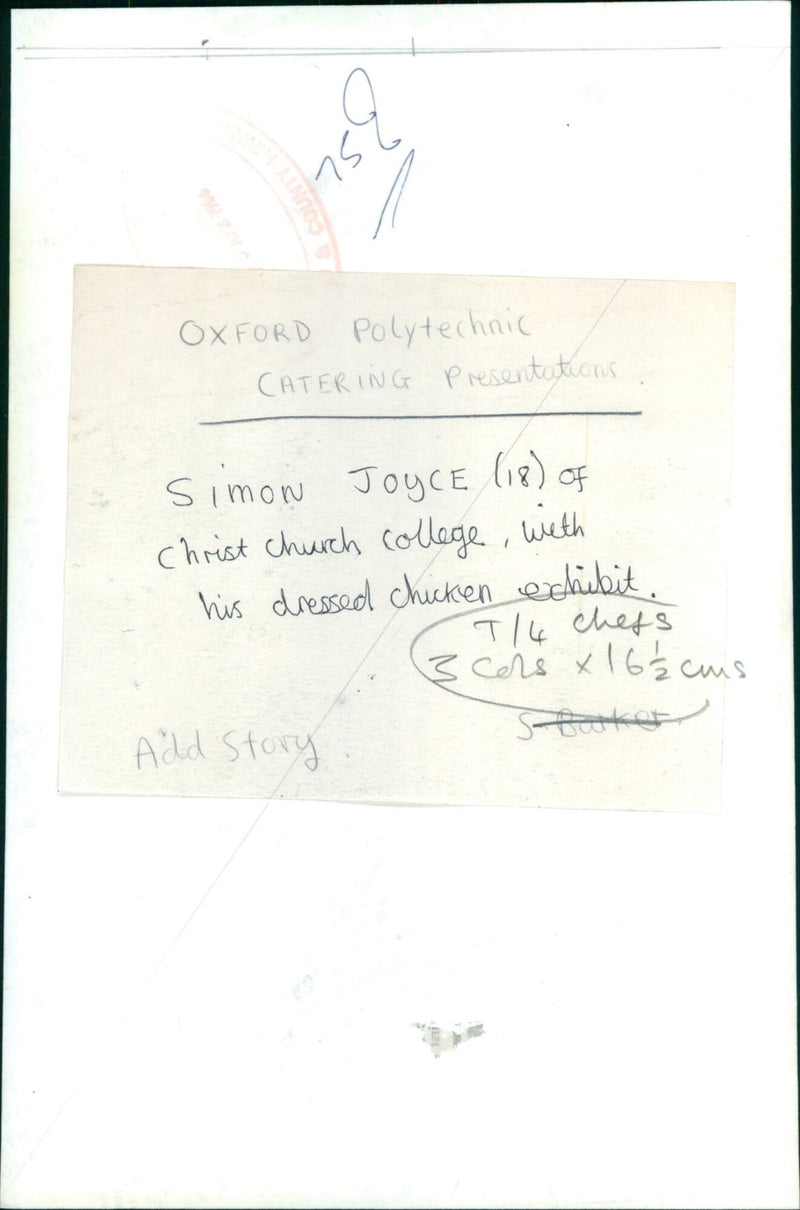 & COUNTY NEW
OXFORD Polytechnic
CATERING Presentations
SIMON JOYCE (18) of
Christ Church College, with
his dressed chicken exhibit.
T/4 chefs
3 Cols x 16½ cms
S Barker
Add Story